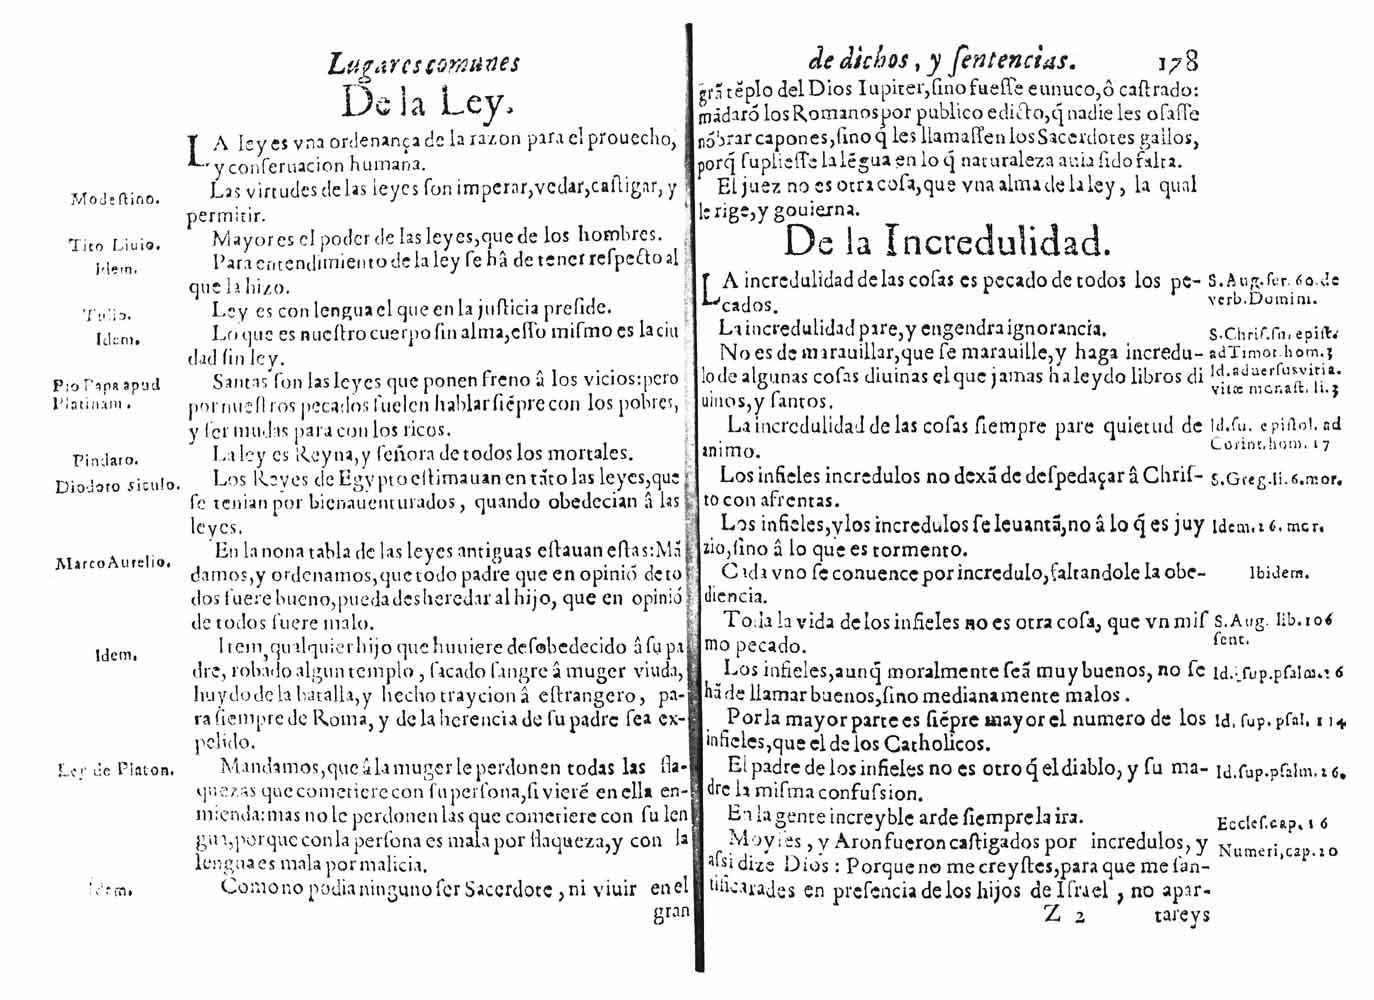 Lugares comunes
De la Ley.
LA ley es vna ordenança de la razon para el prouecho,
y conseruacion humana.
Modestino.
Las virtudes de las leyes son imperar, vedar, castigar, y
permitir.
Tito Liuio.
Mayor es el poder de las leyes, que de los hombres.
Idem.
Para entendimiento de la ley se hâ de tener respecto al
que la hizo.
Tulio.
Ley es con lengua el que en la justicia preside.
Idem.
Lo que es nuestro cuerpo sin alma, esso mismo es la ciu
dad sin ley.
Pio Papa apud
Platinam.
Santas son las leyes que ponen freno â los vicios: pero
por nuestros pecados suelen hablar siẽpre con los pobres,
y ser mudas para con los ricos.
Pindaro.
La ley es Reyna, y señora de todos los mortales.
Diodoro siculo.
Los Reyes de Egypto estimauan en tãto las leyes, que
se tenian por bienauenturados, quando obedecian â las
leyes.
Marco Aurelio.
En la nona tabla de las leyes antiguas estauan estas: Mã
damos, y ordenamos, que todo padre que en opiniõ de to
dos fuere bueno, pueda desheredar al hijo, que en opiniõ
de todos fuere malo.
Idem.
Item, qualquier hijo que huuiere desobedecido â su pa
dre, robado algun templo, sacado sangre â muger viuda,
huydo de la batalla, y hecho traycion â estrangero, pa-
ra siempre de Roma, y de la herencia de su padre sea ex-
pelido.
Ley de Platon.
Mandamos, que â la muger le perdonen todas las fla-
quezas que cometiere con su persona, si vierẽ en ella en-
mienda: mas no le perdonen las que cometiere con su len
gua, porque con la persona es mala por flaqueza, y con la
lengua es mala por malicia.
Idem.
Como no podia ninguno ser Sacerdote, ni viuir en el
gran
de dichos, y sentencias. 178
grã tẽplo del Dios Iupiter, sino fuesse eunuco, ô castrado:
mãdarõ los Romanos por publico edicto, q̃ nadie les osasse
nõbrar capones, sino q̃ les llamassen los Sacerdotes gallos,
porq̃ supliesse la lẽgua en lo q̃ naturaleza auia sido falta.
El juez no es otra cosa, que vna alma de la ley, la qual
le rige, y gouierna.
De la Incredulidad.
LA incredulidad de las cosas es pecado de todos los pe-
cados.
S. Aug. ser. 60. de
verb. Domini.
La incredulidad pare, y engendra ignorancia.
S. Chris. su. epist.
ad Timot. hom. 3
No es de marauillar, que se marauille, y haga incredu-
lo de algunas cosas diuinas el que jamas ha leydo libros di
uinos, y santos.
Id. aduersus vitia.
vitæ monast. li. 3
La incredulidad de las cosas siempre pare quietud de
animo.
Id. su. epistol. ad
Corint. hom. 17
Los infieles incredulos no dexã de despedaçar â Chris-
to con afrentas.
S. Greg. li. 6. mor.
Los infieles, y los incredulos se leuantã, no â lo q̃ es juy
zio, sino â lo que es tormento.
Idem. 26. mor.
Cada vno se conuence por incredulo, faltandole la obe-
diencia.
Ibidem.
Toda la vida de los infieles no es otra cosa, que vn mis
mo pecado.
S. Aug. lib. 106
sent.
Los infieles, aunq̃ moralmente seã muy buenos, no se
hã de llamar buenos, sino medianamente malos.
Id. sup. psalm. 26
Por la mayor parte es siẽpre mayor el numero de los
infieles, que el de los Catholicos.
Id. sup. psal. 114
El padre de los infieles no es otro q̃ el diablo, y su ma-
dre la misma confussion.
Id. sup. psalm. 26.
En la gente increyble arde siempre la ira.
Eccles. cap. 16
Moyses, y Aron fueron castigados por incredulos, y
assi dize Dios: Porque no me creystes, para que me san-
tificarades en presencia de los hijos de Israel, no apar-
Numeri, cap. 20
Z 2 tareys